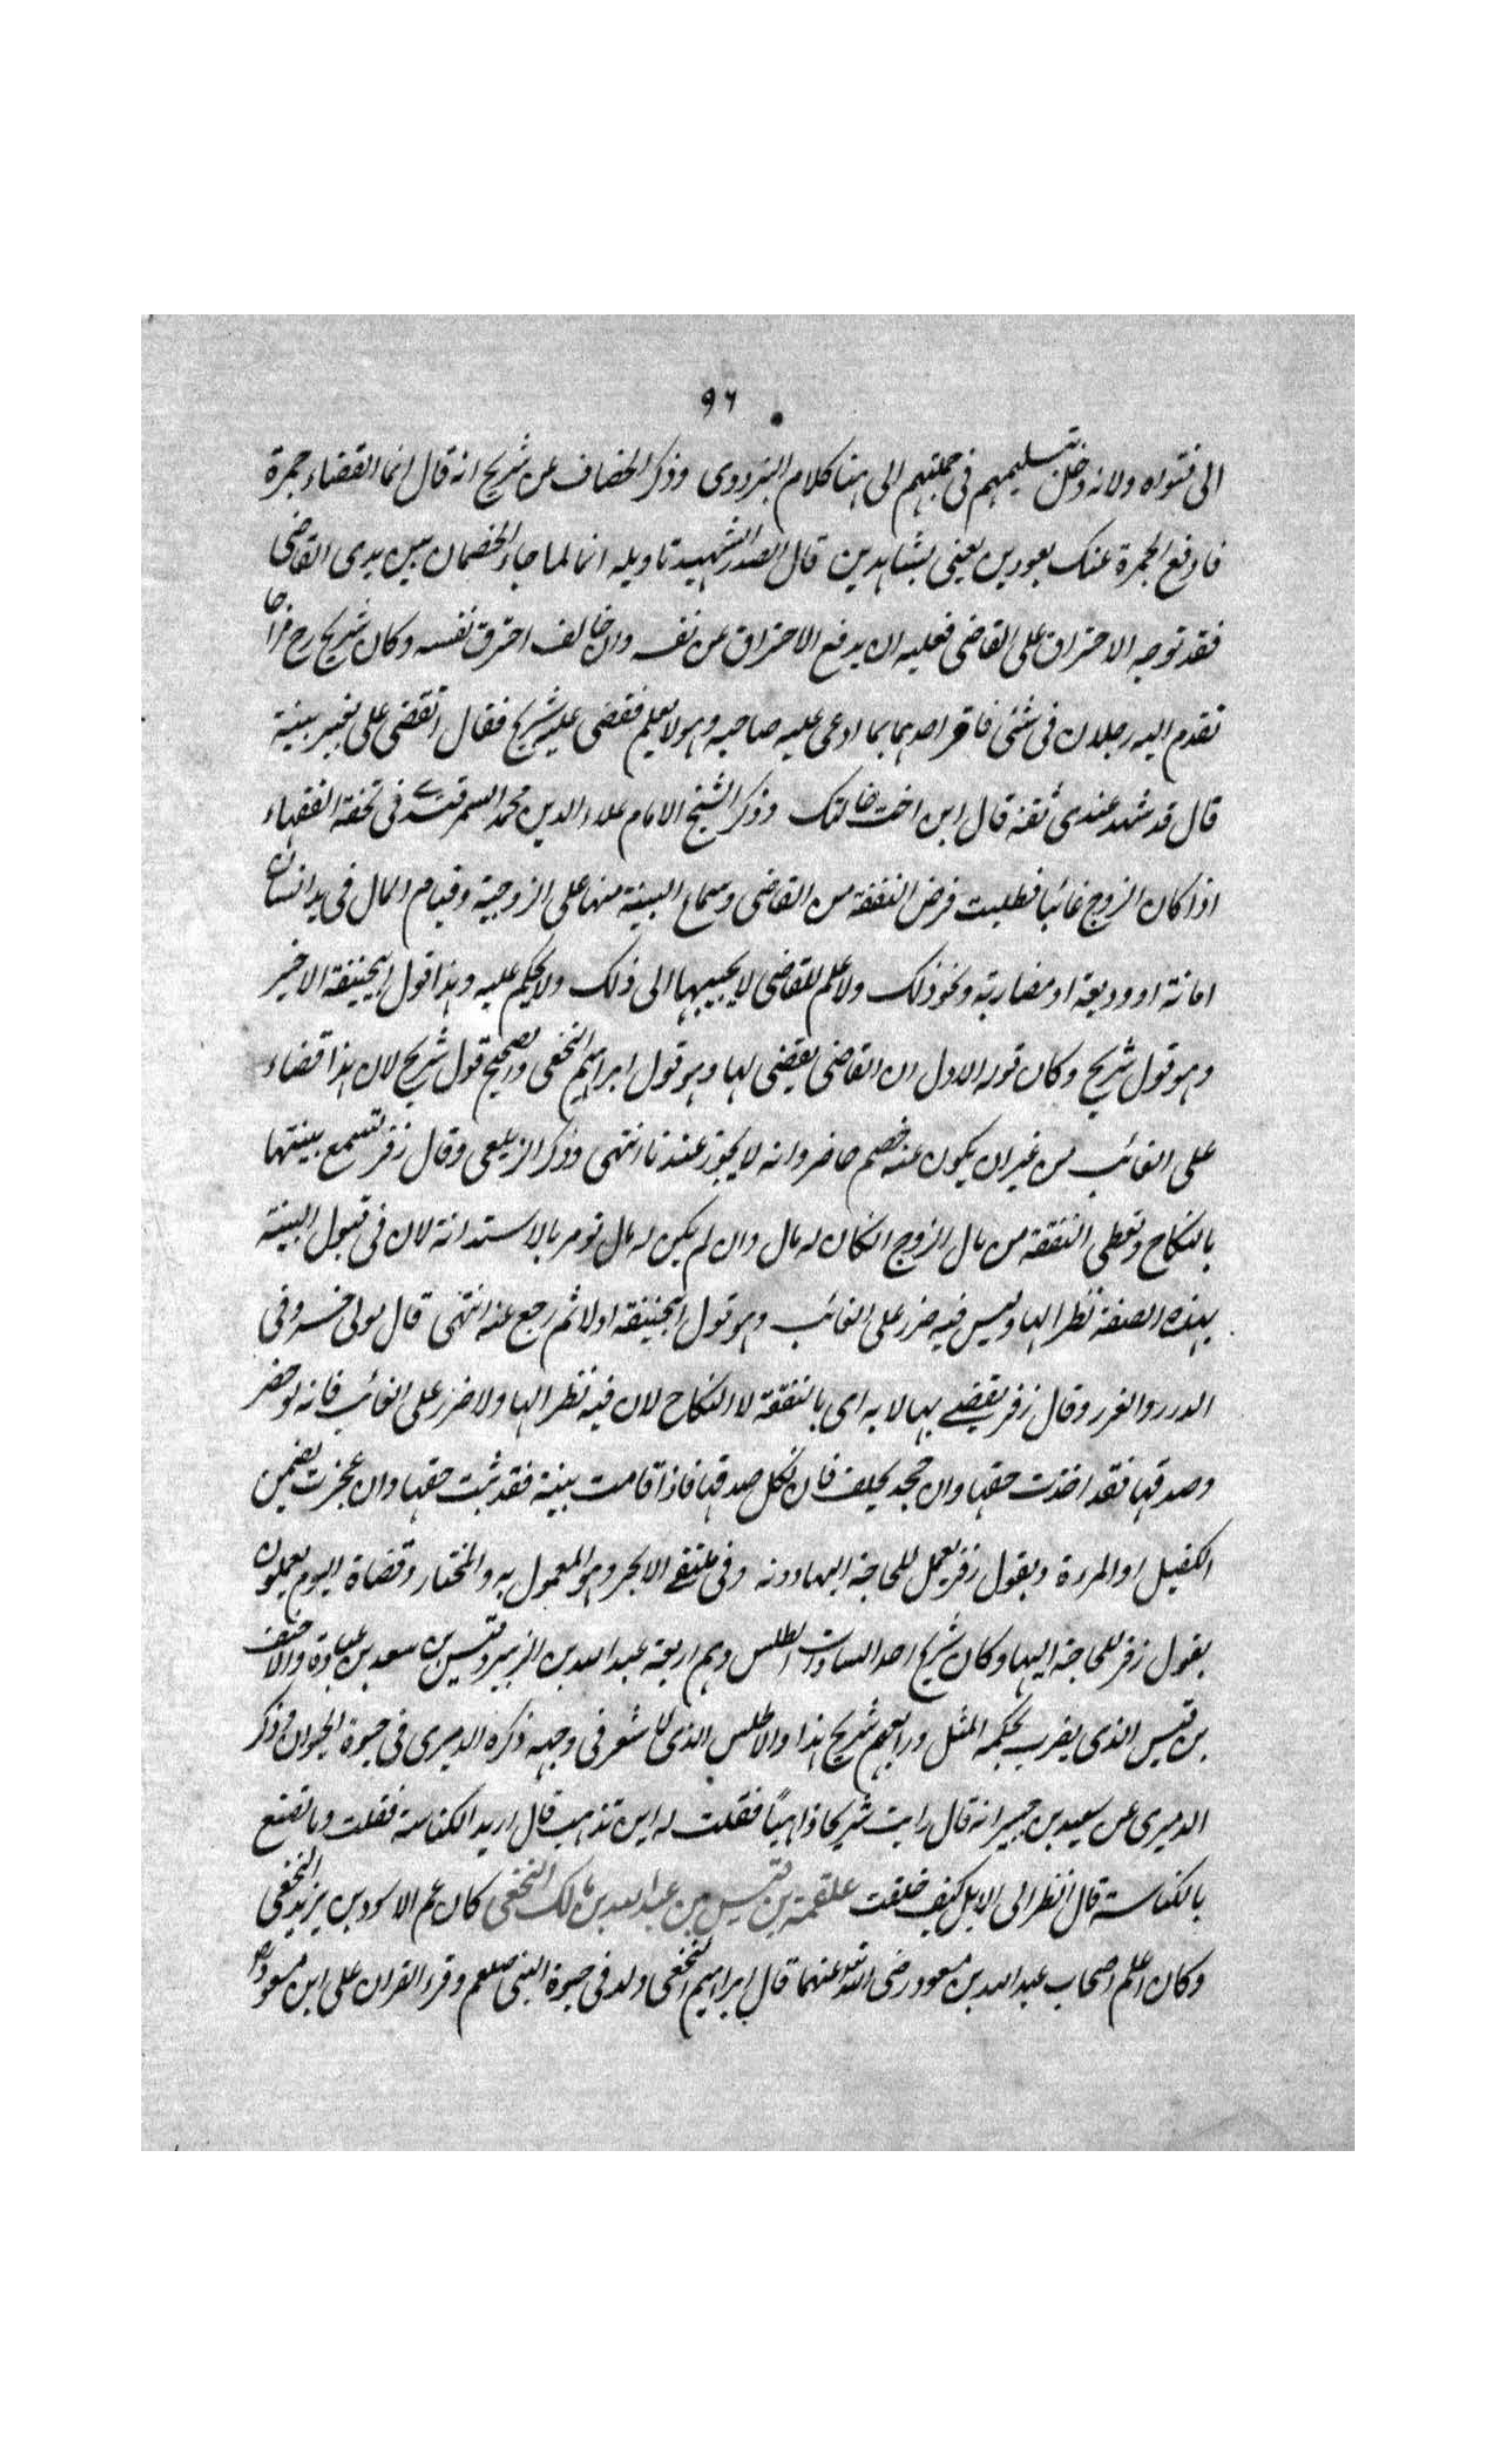 ٩٦
الى فتواه ولانه دخل بتسليمهم فى جملتهم الى هنا كلام البزدوى وذكر الخصاف عن شريح انه قال انما القضاء جمرة
فادفع الجمرة عنك بعودين يعنى بشاهدين قال الصدر الشهيد تاويله انما لما جاء الخصمان بين يدى القاضى
فقد توجه الاحتراق على القاضى فعليه ان يدفع الاحتراق عن نفسه وان خالف احترق نفسه وكان شريح رح مزاحا
تقدم اليه رجلان فى شئ فاقر احدهما بما ادعى عليه صاحبه وهو لا يعلم فقضى عليه شريح فقال اتقضى على بغير بينة
قال قد شهد عندى ثقة قال ابن اخت خالتك وذكر الشيخ الامام علاء الدين محمد السمرقندى فى تحفة الفقهاء
اذا كان الزوج غائبا فطلبت فرض النفقة من القاضى وسماع البينة منها على الزوجية وقيام المال فى يد انسان
امانة او وديعة او مضاربة ونحو ذلك ولا علم للقاضى لا يجيبها الى ذلك ولا يحكم عليه وهذا قول ابيحنيفة الاخير
وهو قول شريح وكان قوله الاول ان القاضى يقضى لها وهو قول ابراهيم النخعى والصحيح قول شريح لان هذا قضاء
على الغائب من غير ان يكون عنه خصم حاضر وانه لا يجوز عندنا انتهى وذكر الزيلعى وقال زفر تسمع بينتها
بالنكاح وتعطى النفقة من مال الزوج انكان له مال وان لم يكن له مال تومر بالاستدانة لان فى قبول البينة
بهذه الصفة نظرا لها وليس فيه ضرر على الغائب وهو قول ابيحنيفة اولا ثم رجع عنه انتهى قال مولى خسرو فى
الدرر والغرر وقال زفر يقضى بها لا به اى بالنفقة لا النكاح لان فيه نظرا لها ولا ضرر على الغائب فانه لو حضر
وصدقها فقد اخذت حقها وان جحد يحلف فان نكل صدقها فاذا اقامت بينة فقد ثبت حقها وان عجزت يضمن
الكفيل او المرءة وبقول زفر يعمل للحاجة اليها دونه وفى ملتقى الابحر وهو المعمول به والمختار وقضاة اليوم يعملون
بقول زفر للحاجة اليها وكان شريح احد السادات الطلس وهم اربعة عبد الله بن الزبير وقيس بن سعد بن عبادة والاحنف
بن قيس الذى يضرب بحكمه المثل ورابعهم شريح هذا والاطلس الذى لا شعر فى وجهه ذكره الدميرى فى حيوة الحيوان وذكر
الدميرى عن سعيد بن جبير انه قال رايت شريحا ذاهبًا فقلت له اين تذهب قال اريد الكناسة فقلت وما تصنع
بالكناسة قال انظر الى الابل كيف خلقت علقمة بن قيس بن عبد الله بن مالك النخعى كان عم الاسود بن يزيد النخعى
وكان اعلم اصحاب عبد الله بن مسعود رضى الله عنهما قال ابراهيم النخعى ولد فى حيوة النبى صلعم وقرء القران على ابن مسعود رض